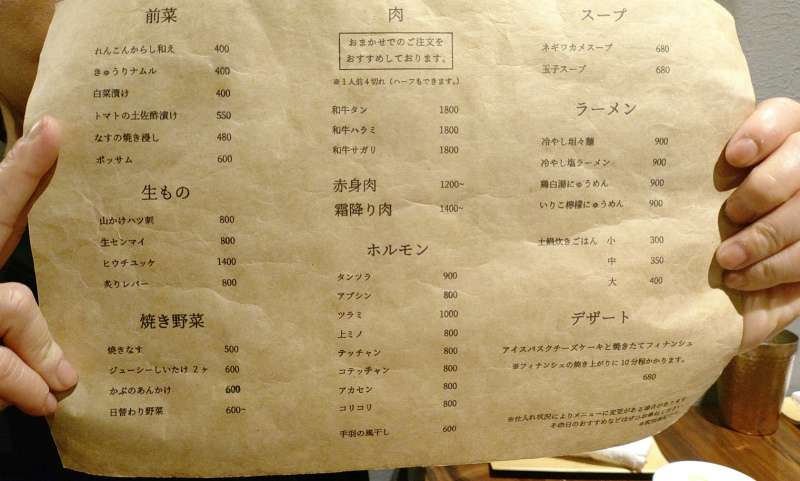 前菜
れんこんからし和え 400
きゅうりナムル 400
白菜漬け 400
トマトの土佐酢漬け 550
なすの焼き浸し 480
ポッサム 600
生もの
山かけハツ刺 800
生センマイ 800
ヒウチユッケ 1400
炙りレバー 800
焼き野菜
焼きなす 500
ジューシーしいたけ 2ヶ 600
かぶのあんかけ 600
日替わり野菜 600~
肉
おまかせでのご注文を
おすすめしております。
※1人前4切れ（ハーフもできます。）
和牛タン 1800
和牛ハラミ 1800
和牛サガリ 1800
赤身肉 1200~
霜降り肉 1400~
ホルモン
タンツラ 900
アブシン 800
ツラミ 1000
上ミノ 800
テッチャン 800
コテッチャン 800
アカセン 800
コリコリ 800
手羽の風干し 600
スープ
ネギワカメスープ 680
玉子スープ 680
ラーメン
冷やし坦々麺 900
冷やし塩ラーメン 900
鶏白湯にゅうめん 900
いりこ檸檬にゅうめん 900
土鍋炊きごはん 小 300
中 350
大 400
デザート
アイスバスクチーズケーキと焼きたてフィナンシュ
※フィナンシェの焼き上がりに10分程かかります。
680
※仕入れ状況によりメニューに変更がある場合があります
その日のおすすめなどは